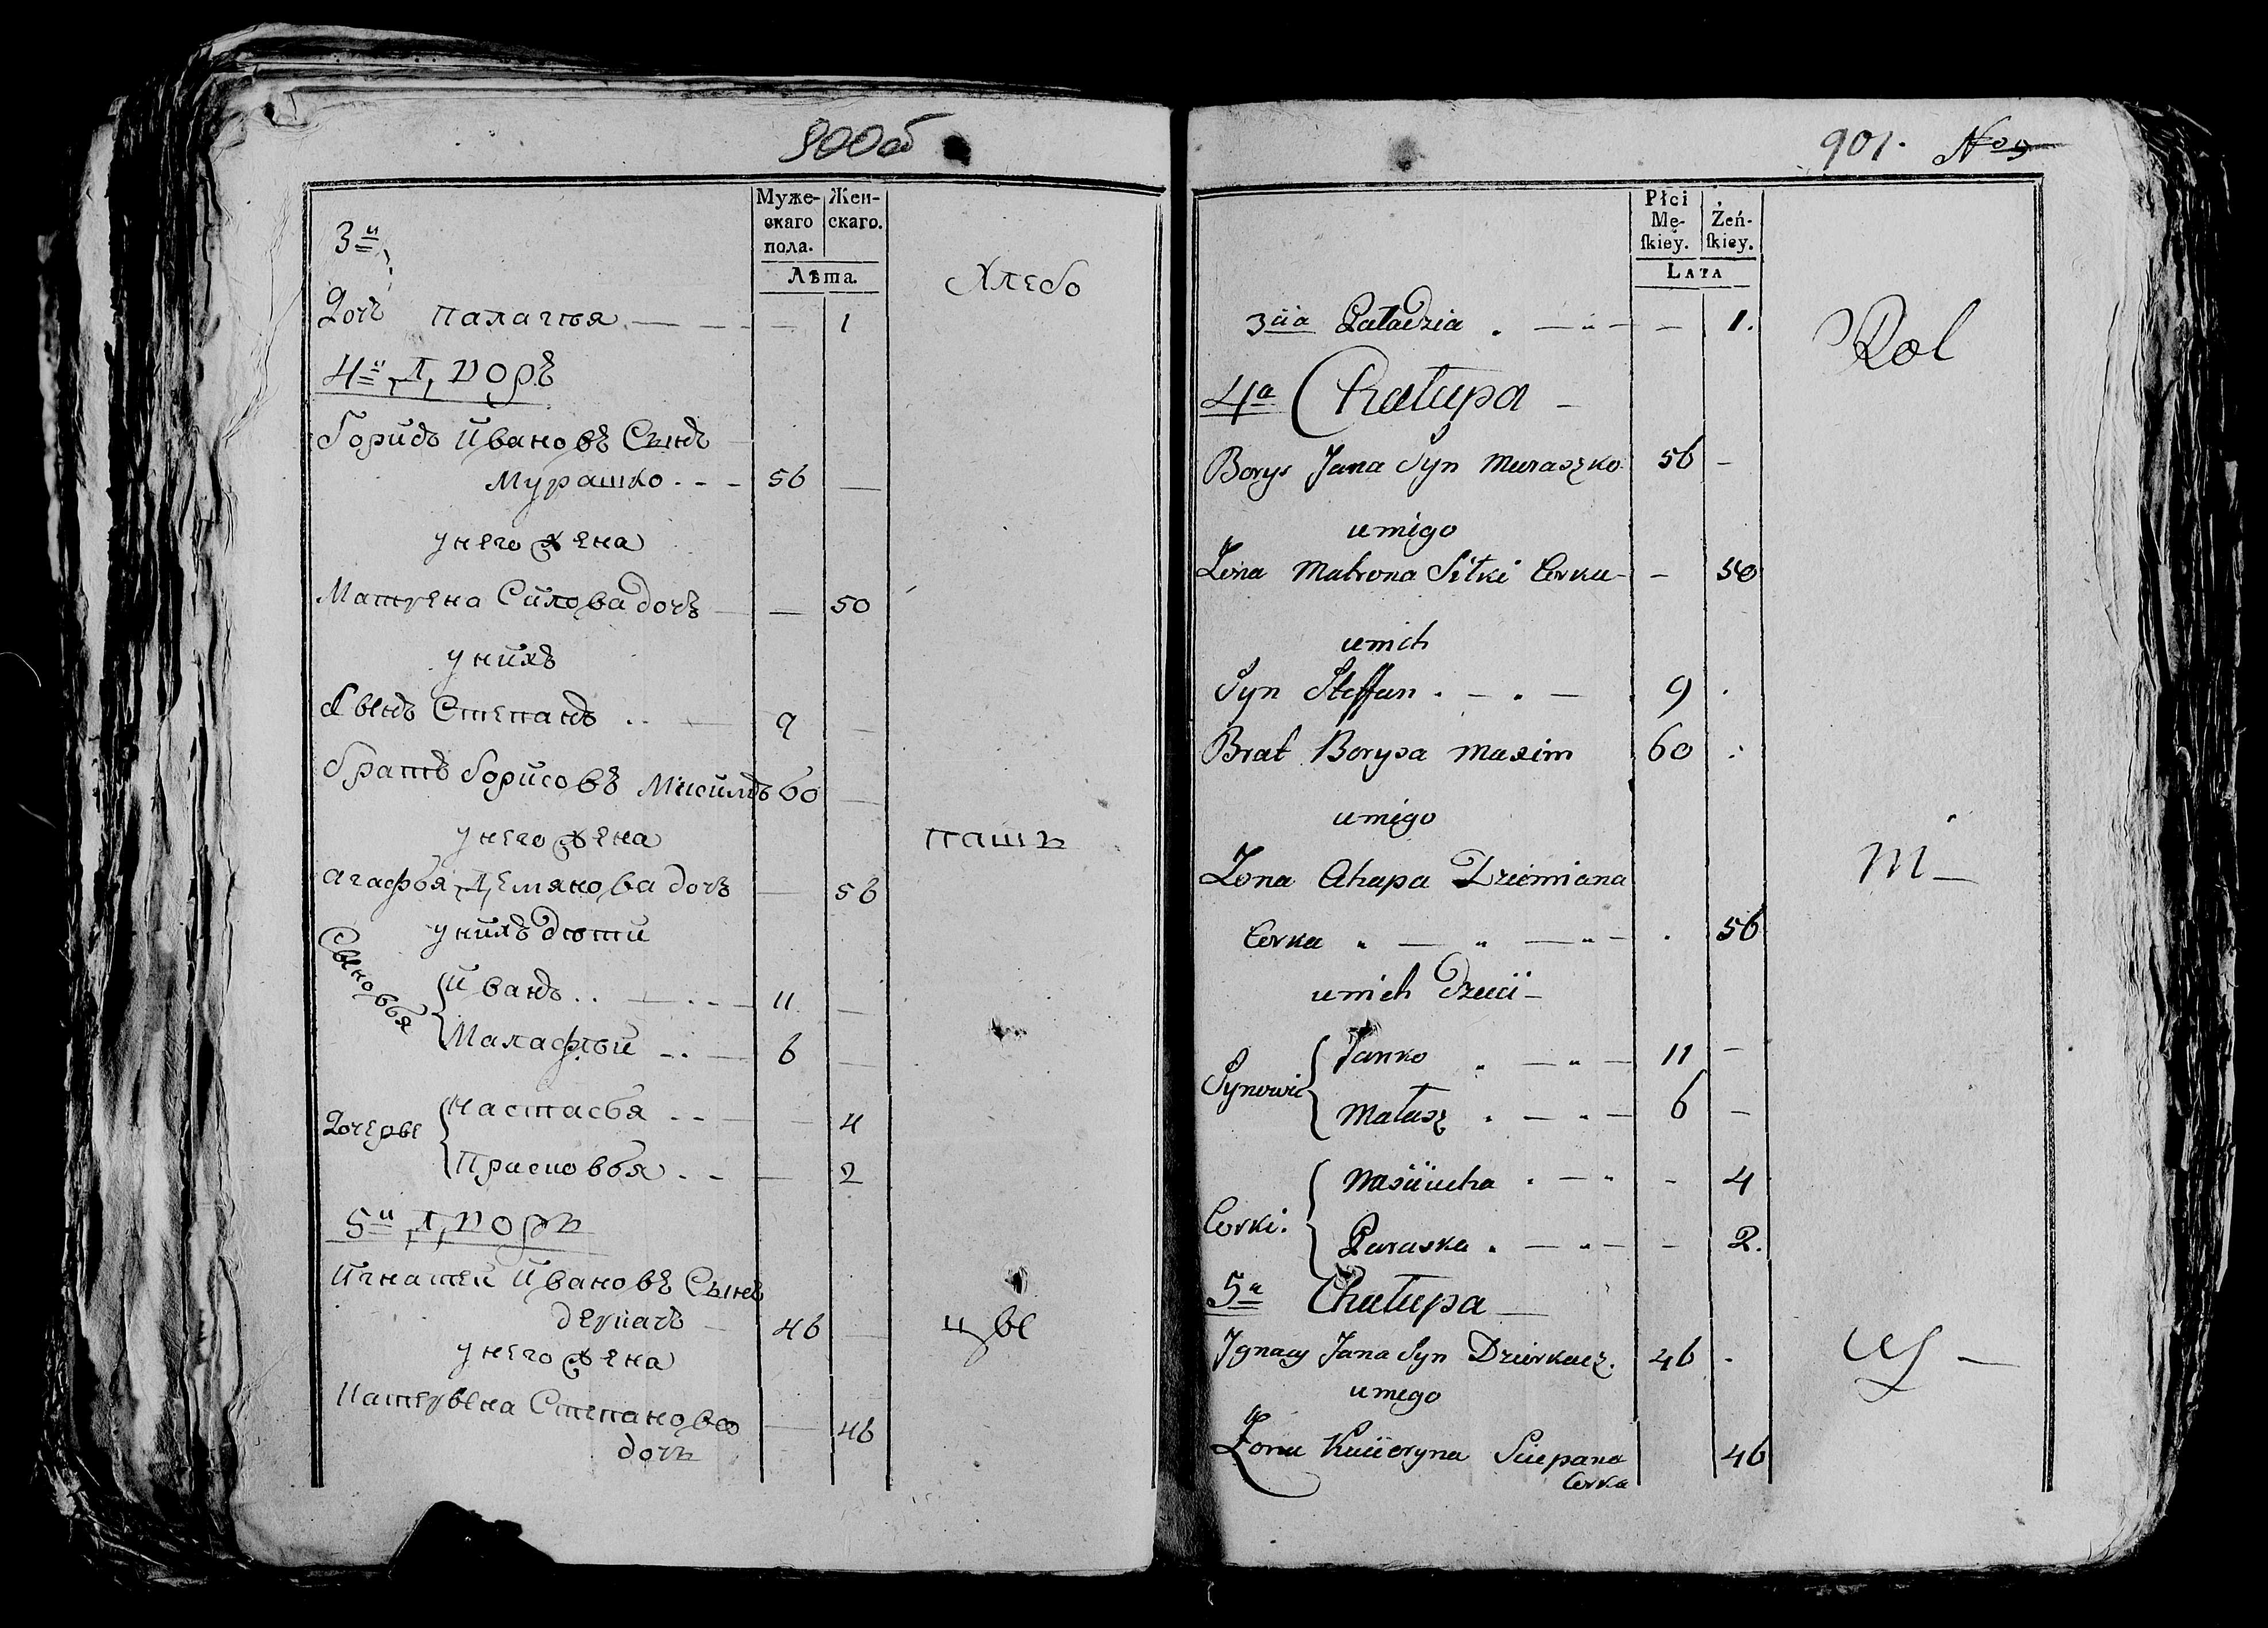 900об
Муже- Жен-
скаго скаго.
пола.
Лѣта.
3й
Хлебо
Дочь палагѣя — 1
4й Дворъ
Борисъ Ивановъ Сынъ
Мурашко 56 —
у него жена
Матрена Силова дочь — 50
у нихъ
Сынъ Степанъ 9 —
братъ борисовъ Максимъ 60 —
у него жена пашъ
агафья Демянова дочь — 56
у нихъ дѣти
Сыновья
Иванъ 11 —
Малафѣй 6 —
Дочерье
настасья — 4
Прасковья — 2
5й Дворъ
Игнатей Ивановъ Сынъ
деркачъ 46 — цы
у него жена
Катерына Степанова — 46
дочь
901. No 9
Płci
Mę- Żeń-
skiey. skiey.
LATA
3cia Paładzia — 1.
Rol
4a Chałupa
Borys Jana Syn Muraszko 56 —
u niego
Żona Matrona Siłki Corka — 50
u nich
Syn Steffan 9
Brat Borysa Maxim 60
u niego
Żona Ahapa Dziemiana m
Corka 56
u nich Dzieci
Synowie
Janko 11 —
Małasz 6 —
Corki.
Nasciucha — 4
Paraska — 2.
5a Chałupa
Ignacy Jana Syn Dzierkacz. 46 cy
u niego
Żona Kacieryna Sciepana 46
Corka